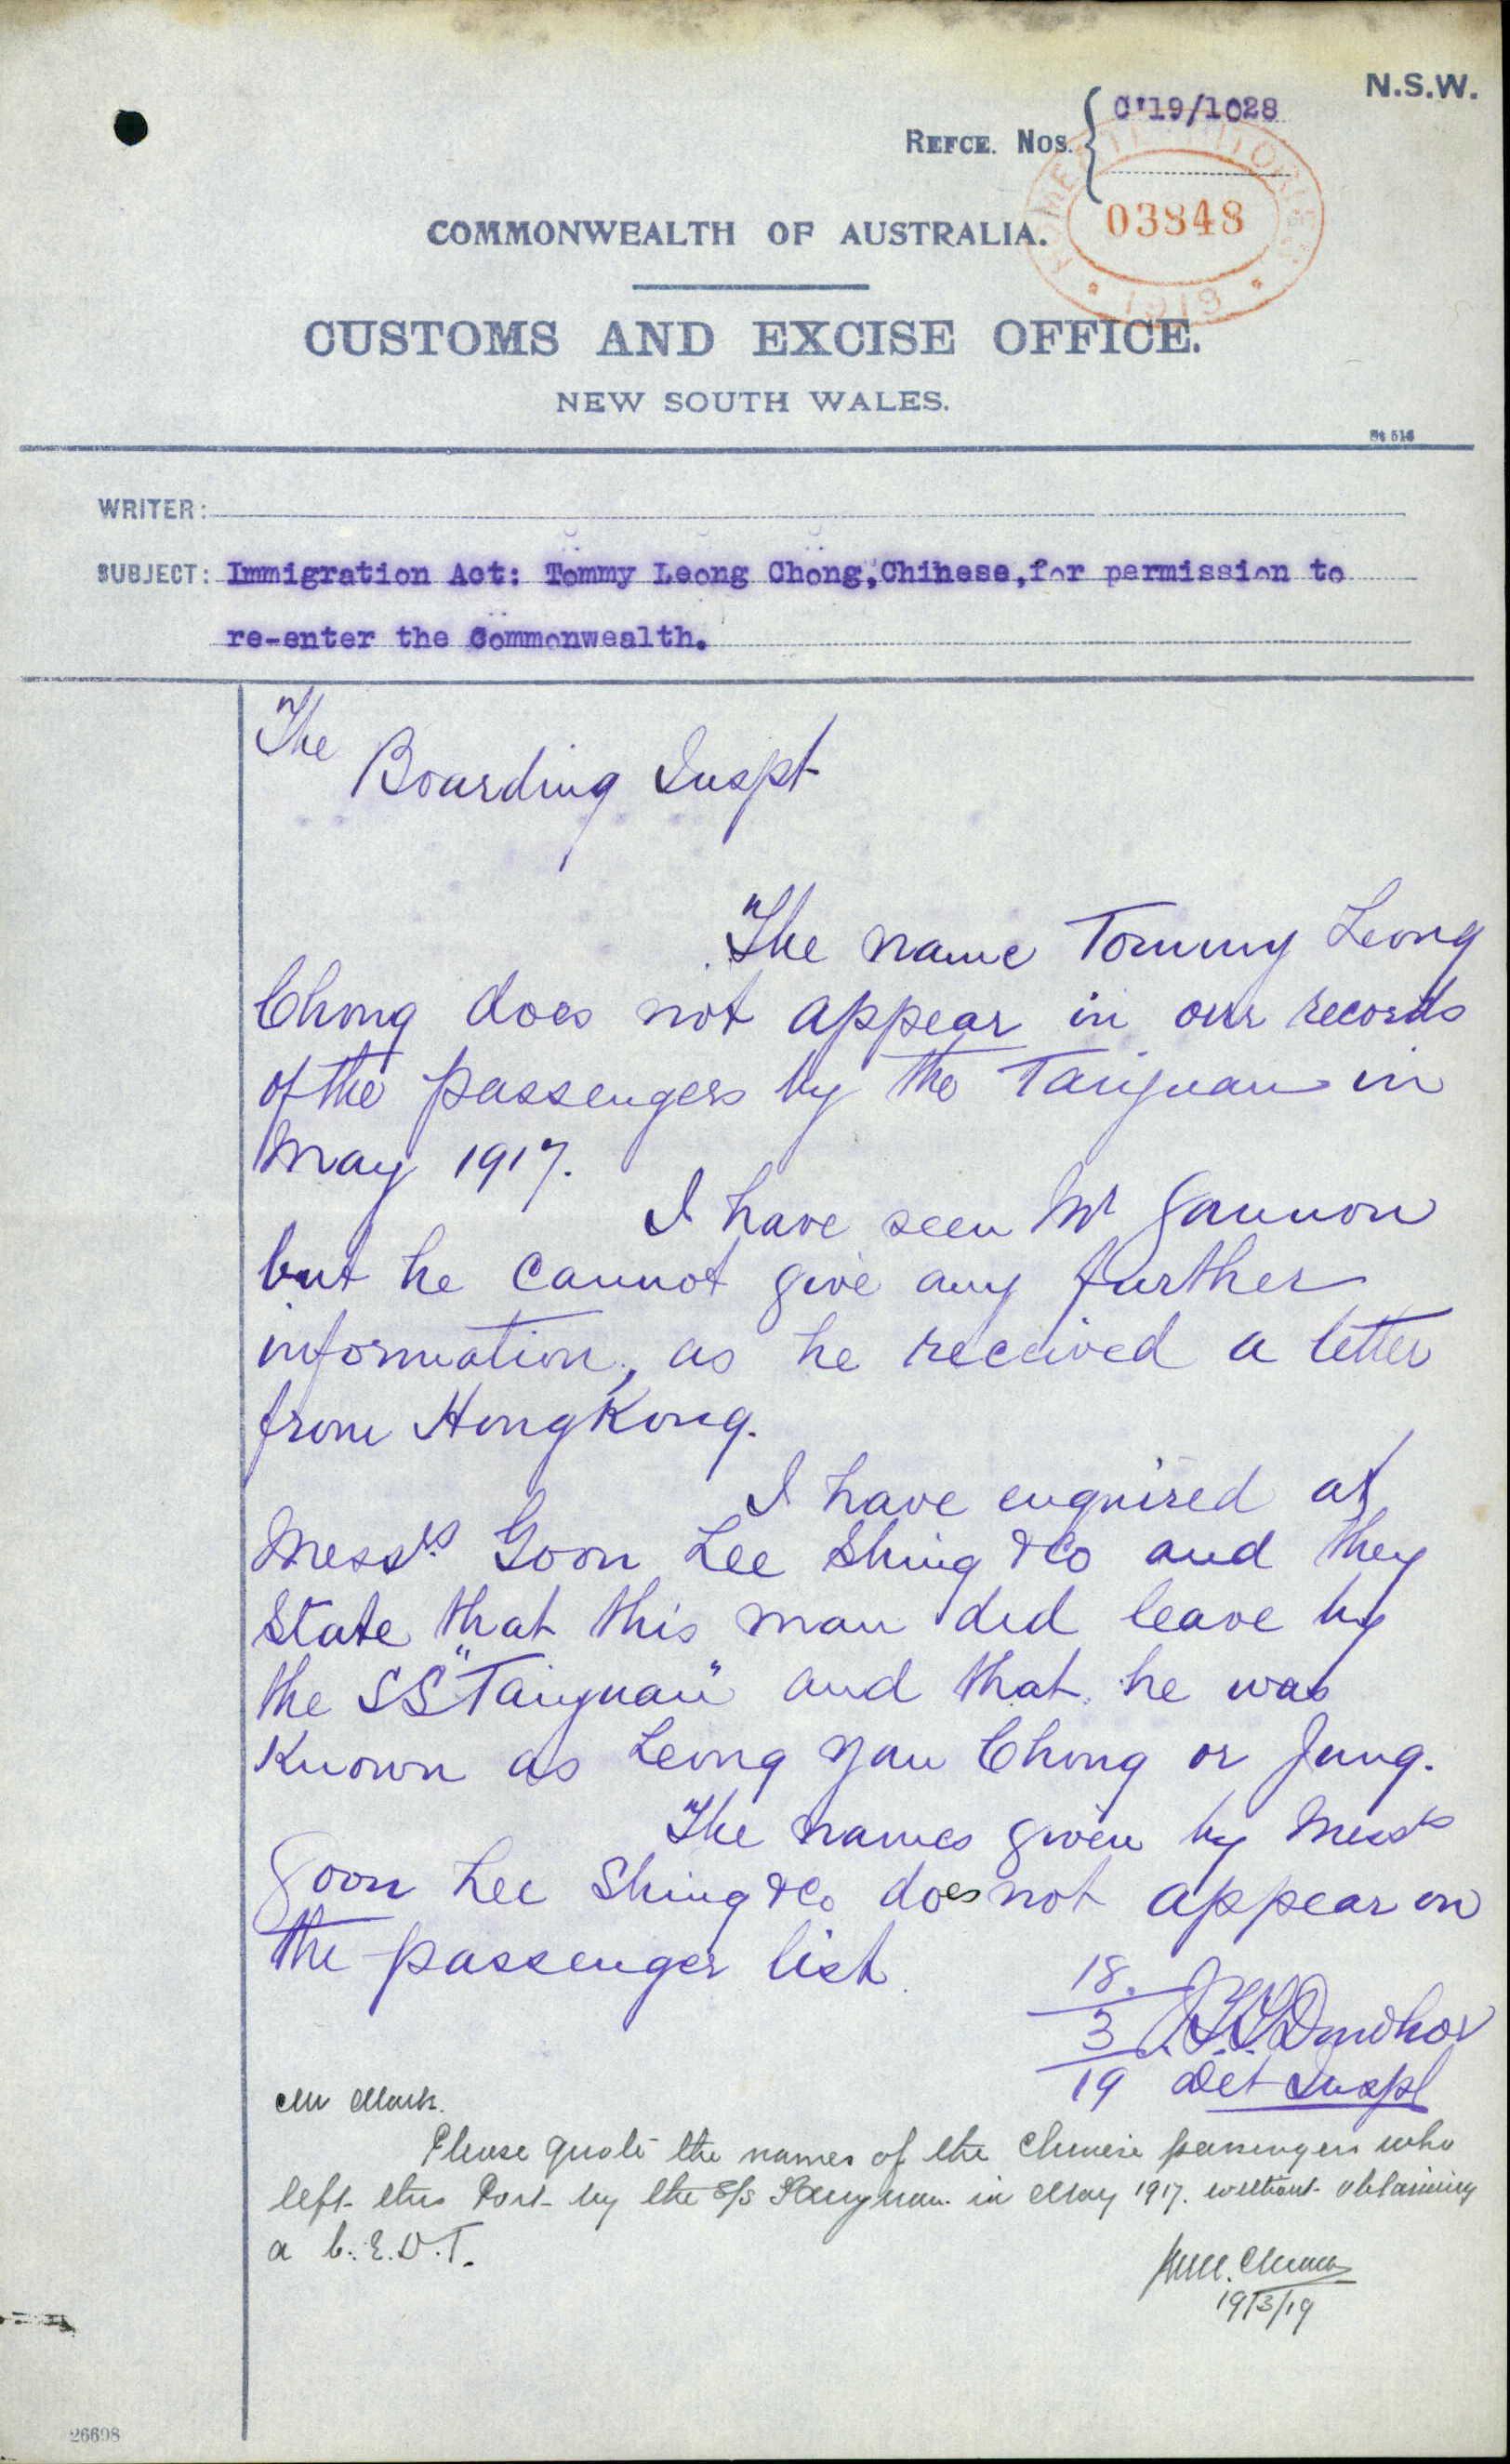 N.S.W.
C'19/1028
REFCE. NOS.
HOME AND TERRITORIES
03848
1919
COMMONWEALTH OF AUSTRALIA.
CUSTOMS AND EXCISE OFFICE.
NEW SOUTH WALES.
WRITER:
SUBJECT: Immigration Act: Tommy Leong Chong, Chinese, for permission to
re-enter the Commonwealth.
The
Boarding Inspt
The name Tommy Leong
Chong does not appear in our records
of the passengers by the Taiyuan in
May 1917.
I have seen Mr Gannon
but he cannot give any further
information, as he received a letter
from Hong Kong.
I have enquired at
Messrs Goon Lee Shing & Co and they
state that this man did leave by
the SS "Taiyuan" and that he was
known as Leong Yau Chong or Jung.
The names given by Messrs
Goon Lee Shing & Co does not appear on
the passenger list.
18.
3
19 Det Inspt
Mr Mark.
Please quote the names of the Chinese passengers who
left this Port by the S/S Taiyuan in May 1917. without obtaining
a C.E.D.T.
19/3/19
26698